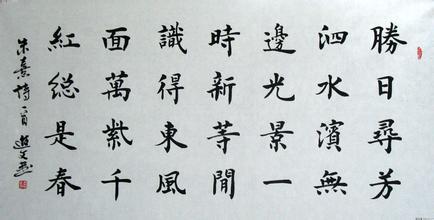 勝日尋芳
泗水濱無
邊光景一
時新等間
識得東風
面萬紫千
紅総是春
朱熹詩一首